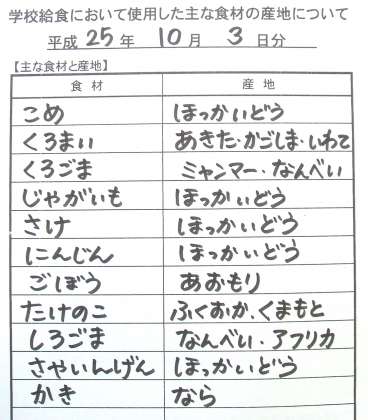 学校給食において使用した主な食材の産地について
平成 25 年 10 月 3 日分
【主な食材と産地】
食材 産地
こめ ほっかいどう
くろまい あきた・かごしま・いわて
くろごま ミャンマー・なんべい
じゃがいも ほっかいどう
さけ ほっかいどう
にんじん ほっかいどう
ごぼう あおもり
たけのこ ふくおか、くまもと
しろごま なんべい・アフリカ
さやいんげん ほっかいどう
かき なら